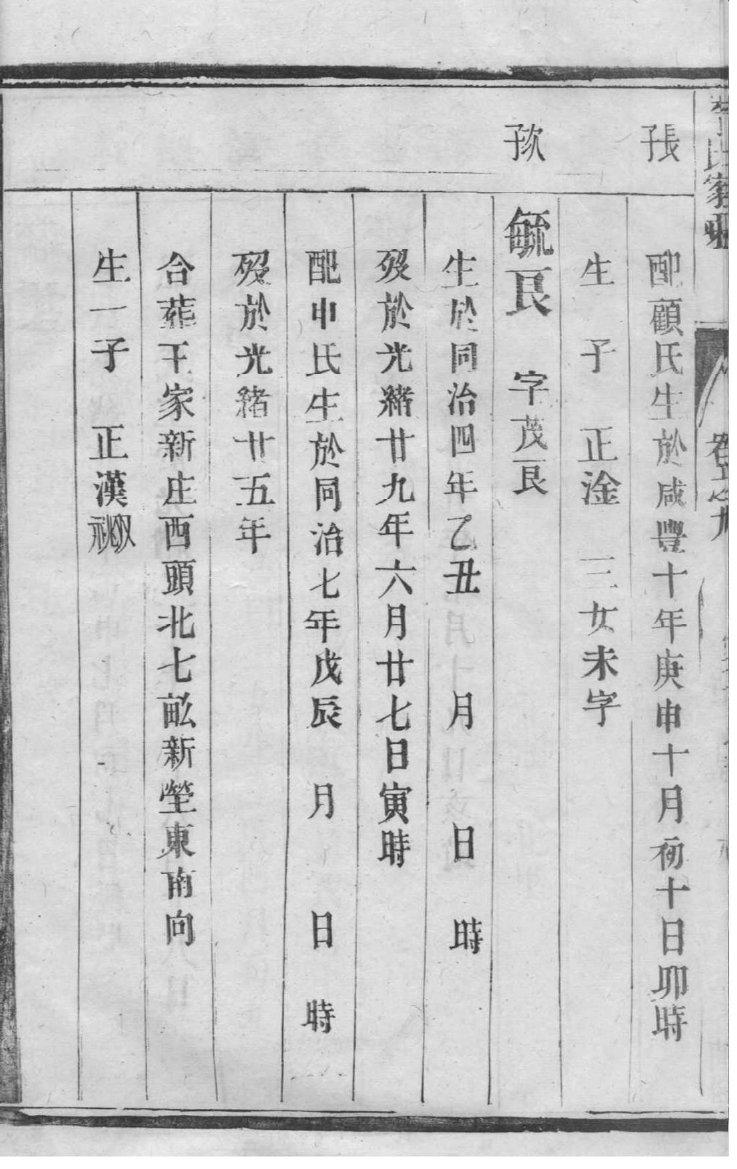 氏家
張
子
配顧氏生於咸豐十年庚申十月初十日卯時
生 子 正淦 三女未字
欽
子
毓艮 字茂艮
生於同治四年乙丑 月 日 時
歿於光緒廿九年六月廿七日寅時
配申氏生於同治七年戊辰 月 日 時
歿於光緒廿五年
合葬王家新庄西頭北七畝新塋東南向
生一子 正漢